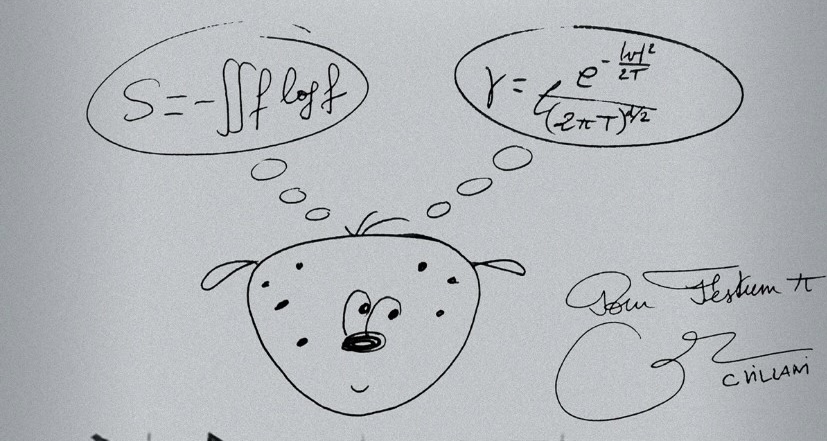 S = - ∬ f log f
γ = e^{-|v|²/2T} / (2πT)^{d/2}
Pour Festum π
C VILLANI